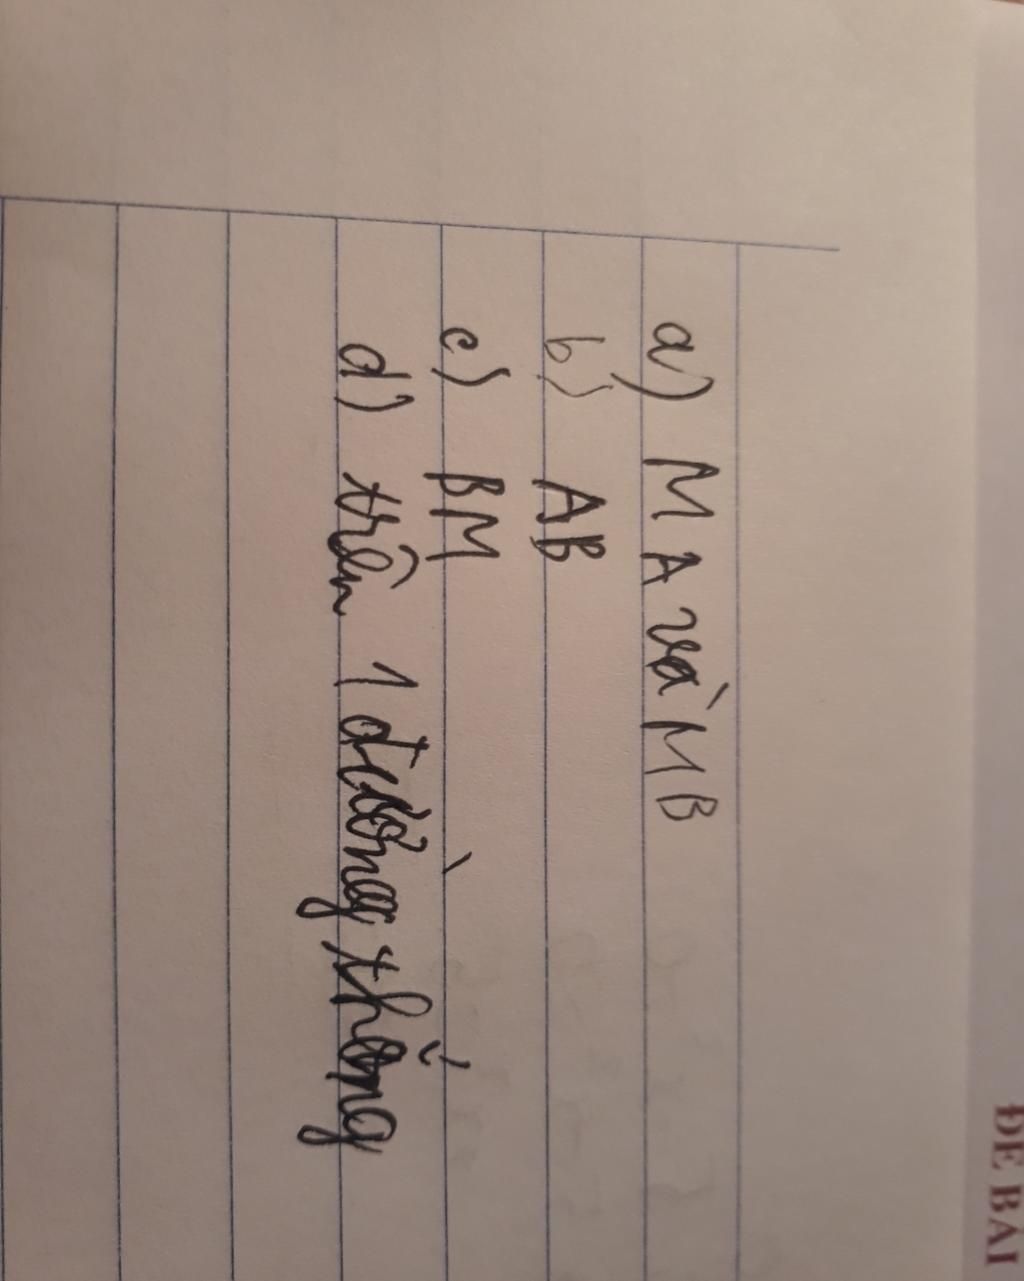 ĐỀ BÀI
a) MA và MB
b) AB
c) BM
d) trên 1 đường thẳng